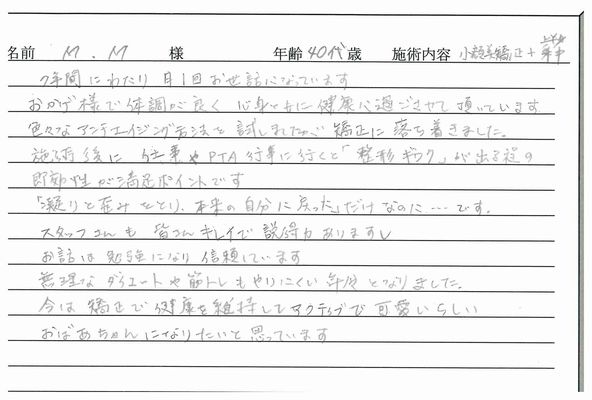 名前 M.M 様 年齢 40代 歳 施術内容 小顔美矯正+
7年間にわたり 月1回お世話になっています
おかげ様で体調が良く 心身共に健康に過ごさせて頂いています
色々なアンチエイジング方法を試しましたが、矯正に落ち着きました。
施術後に 仕事やPTA行事に行くと「整形ギワク」が出る程の
即効性が満足ポイントです
「凝りと歪みをとり、本来の自分に戻った」だけなのに…です。
スタッフさんも 皆さんキレイで説得力ありますし
お話は勉強になり信頼しています
無理なダイエットや筋トレもやりにくい年代となりました。
今は矯正で健康を維持してアクティブで可愛いらしい
おばあちゃんになりたいと思っています